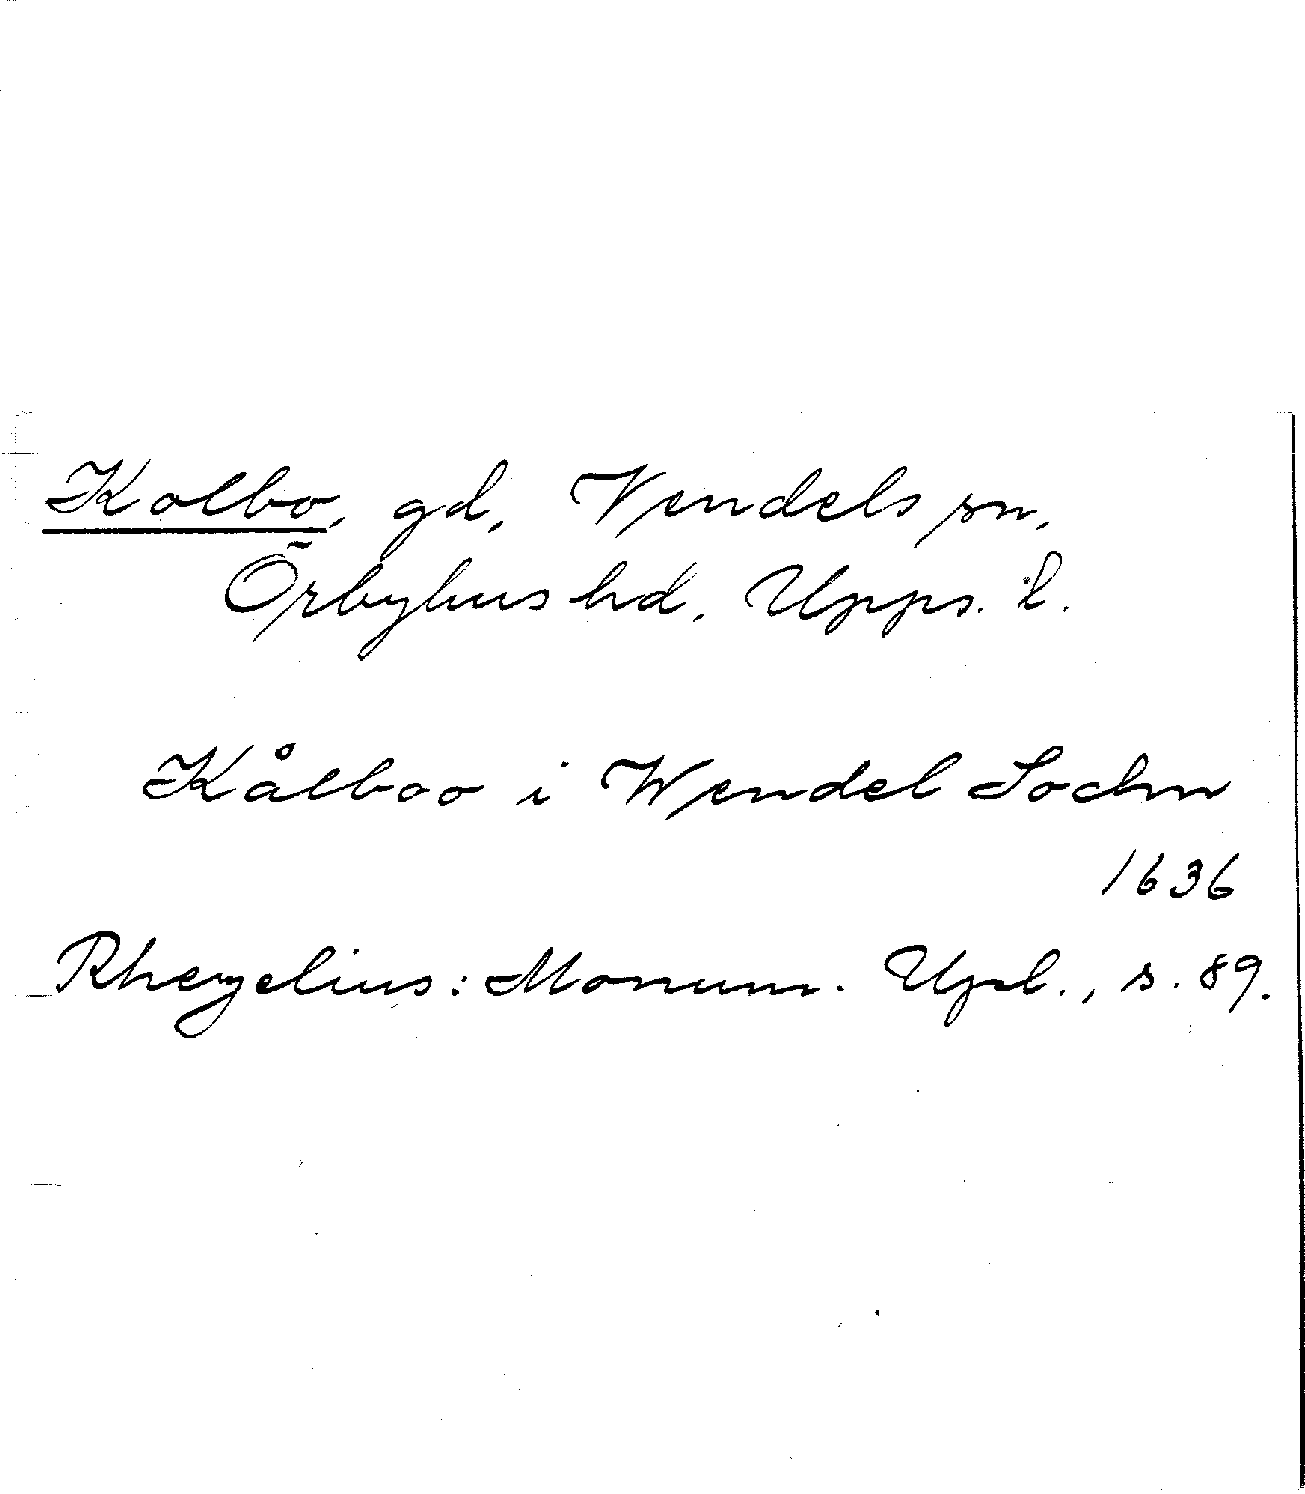 Kolbo, gd, Vendels sn,
Örbyhus hd, Upps. l.
Kålboo i Wendel Sochn
1636
Rhezelius: Monum. Upl., s. 89.